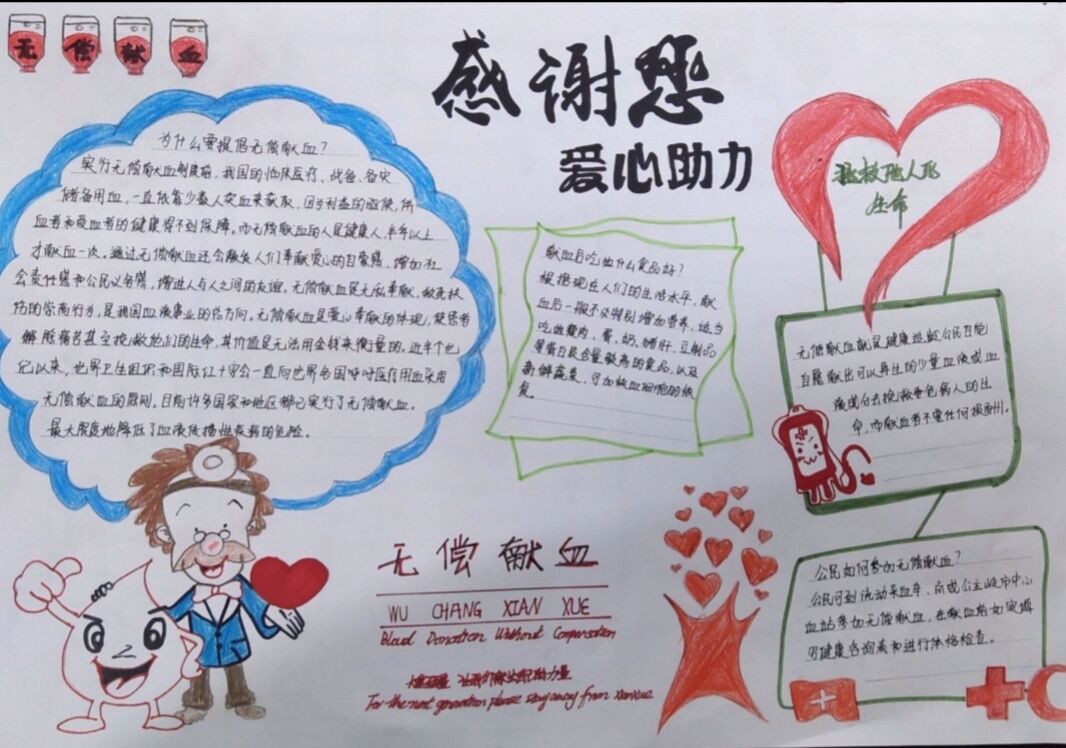 无偿献血
感谢您
爱心助力
为什么要提倡无偿献血？
实行无偿献血制度前，我国的临床医疗、战备、备灾
储备用血，一直依靠少数人卖血来获取，因为利益的驱使，供
血者和受血者的健康得不到保障。而无偿献血的人是健康人，半年以上
才献血一次。通过无偿献血还会激发人们奉献爱心的自豪感，增加社
会责任感和公民义务感，增进人与人之间的友谊。无偿献血是无私奉献，救死扶
伤的崇高行为，是我国血液事业的总方向。无偿献血是爱心奉献的体现，使患者
解除痛苦甚至挽救他们的生命，其价值是无法用金钱来衡量的。近半个世
纪以来，世界卫生组织和国际红十字会一直向世界各国呼吁医疗用血采用
无偿献血的原则。目前许多国家和地区都已实行了无偿献血。
最大限度地降低了血液传播性疾病的危险。
献血后吃些什么食品好？
根据现在人们的生活水平，献
血后一般不必特别增加营养，适当
吃些瘦肉、蛋、奶、猪肝、豆制品
等蛋白质含量较高的食品，以及
新鲜蔬菜，可加快血细胞的恢
复。
拯救他人死
生命
无偿献血就是健康适龄公民自己
自愿献出可以再生的少量血液或血
液成分去挽救垂危病人的生
命，而献血者不索任何报酬。
公民如何参加无偿献血？
公民可到流动采血车、市中心
血站参加无偿献血，在献血前如实填
写健康咨询表和进行体格检查。
无偿献血
WU CHANG XIAN XUE
Blood Donation Without Compensation
For the next generation please stay away from xianxue